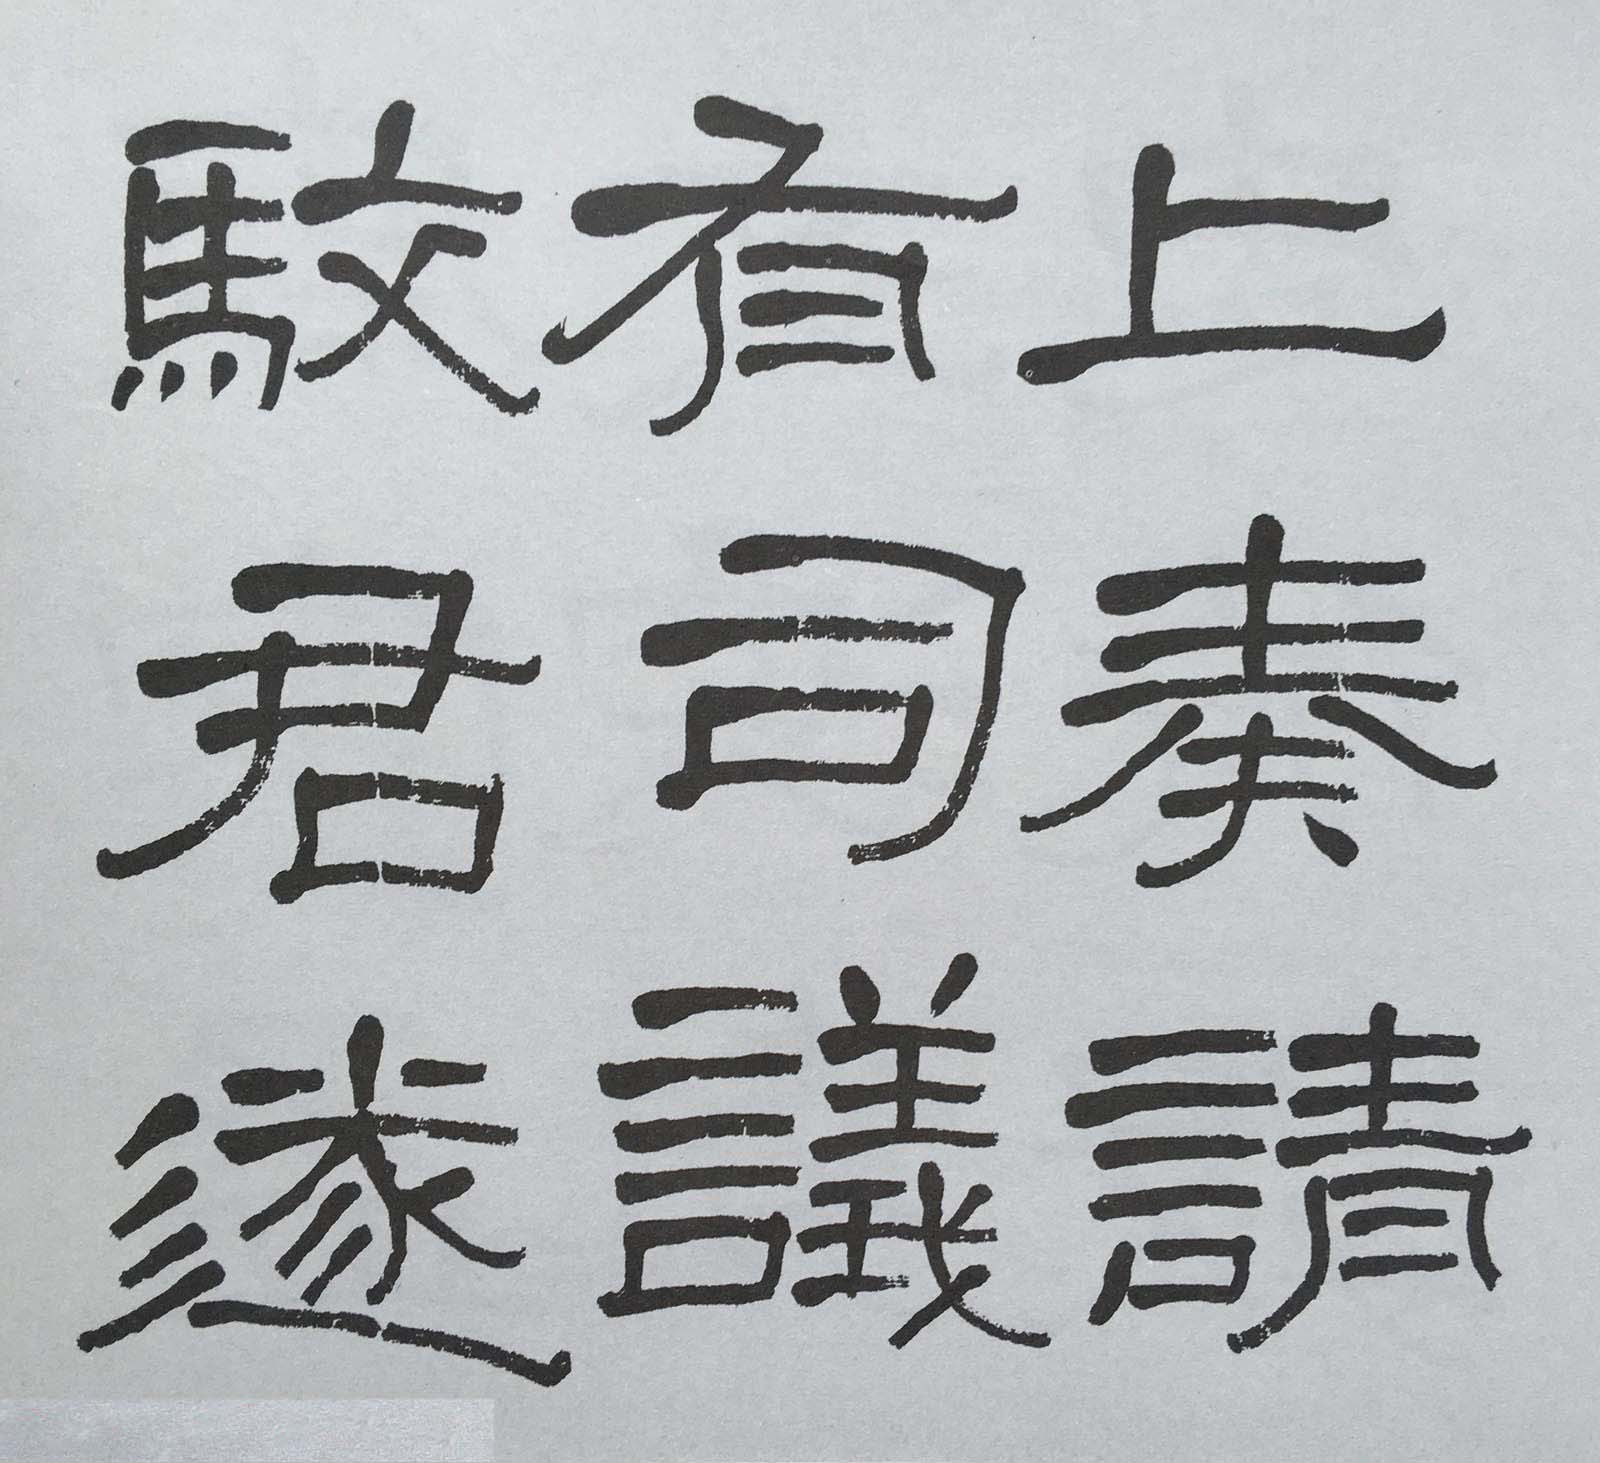 上奏請
有司議
駮君遂